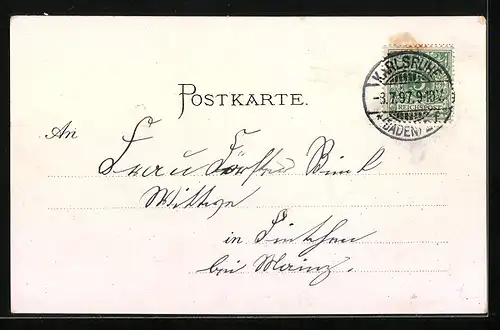 KARLSRUHE
-3.7.97. 9-10V
* (BADEN) 2 f
REICHSPOST
POSTKARTE.
An
Frau Förster
Wittwe
in
bei Mainz.